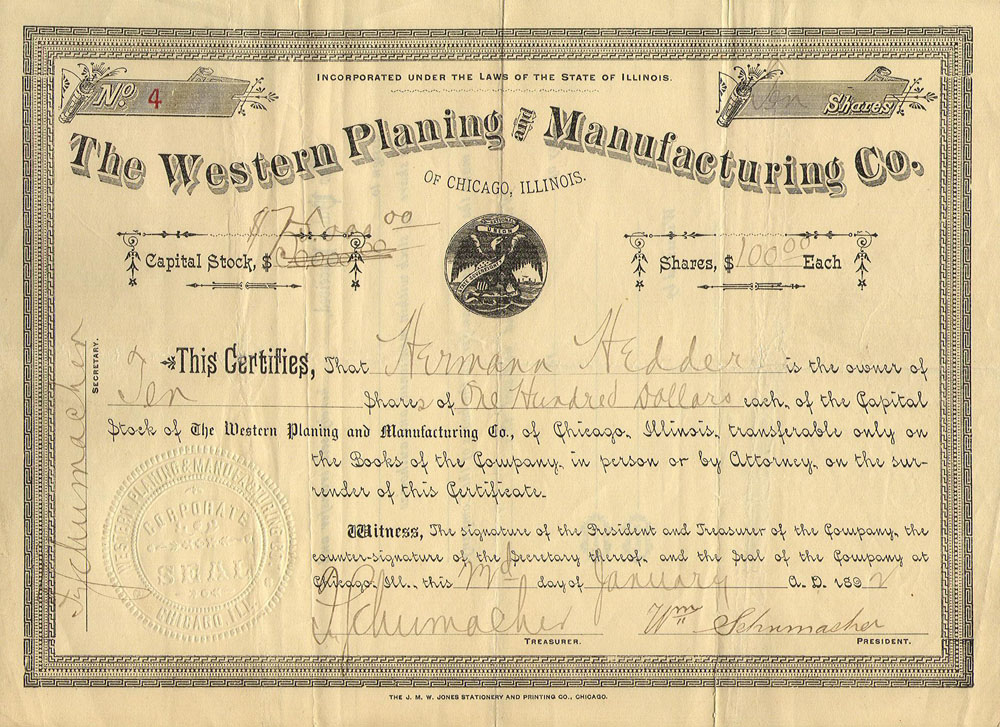 INCORPORATED UNDER THE LAWS OF THE STATE OF ILLINOIS.
No. 4
Ten Shares
The Western Planing and Manufacturing Co.
OF CHICAGO, ILLINOIS.
$75,000.00
Capital Stock, $
UNION
Shares, $100.00 Each
This Certifies, That Hermann Hedder is the owner of
Ten Shares of One Hundred Dollars each, of the Capital
Stock of The Western Planing and Manufacturing Co., of Chicago, Illinois, transferable only on
the Books of the Company, in person or by Attorney, on the sur-
render of this Certificate.
Witness, The signature of the President and Treasurer of the Company, the
counter-signature of the Secretary thereof, and the Seal of the Company at
Chicago, Ill., this day of January A. D. 1892
Schumacher
TREASURER.
Wm Schumacher
PRESIDENT.
Schumacher
SECRETARY.
WESTERN PLANING & MANUFACTURING CO.
CORPORATE
SEAL
CHICAGO, ILL.
THE J. M. W. JONES STATIONERY AND PRINTING CO., CHICAGO.